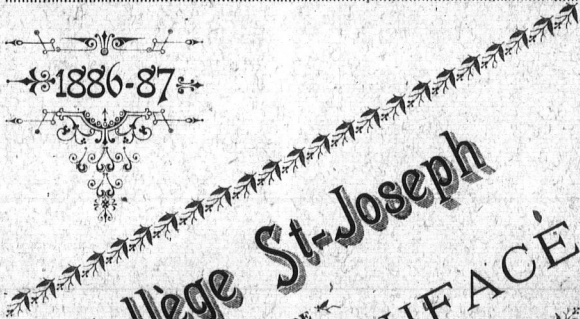 1886-87
llège St-Joseph
IFACE